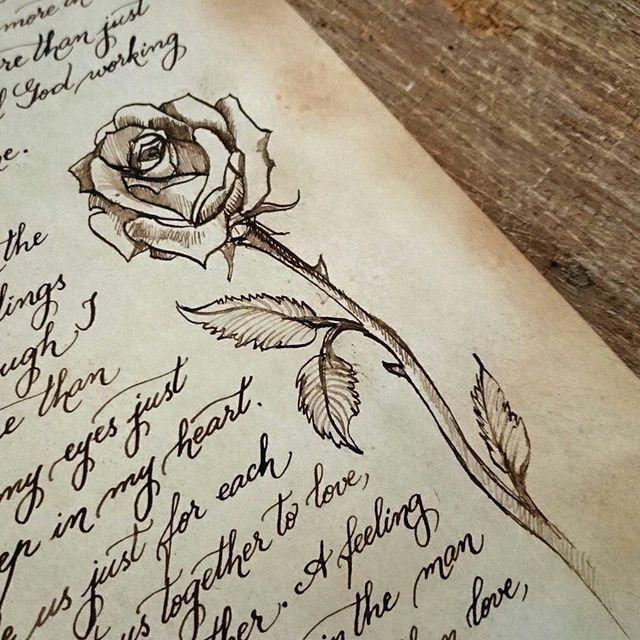 more in
re than just
God working
e.
the
lings
ugh I
e than
my eyes just
ep in my heart.
e us just for each
us together to love,
ther. A feeling,
in the man
love,